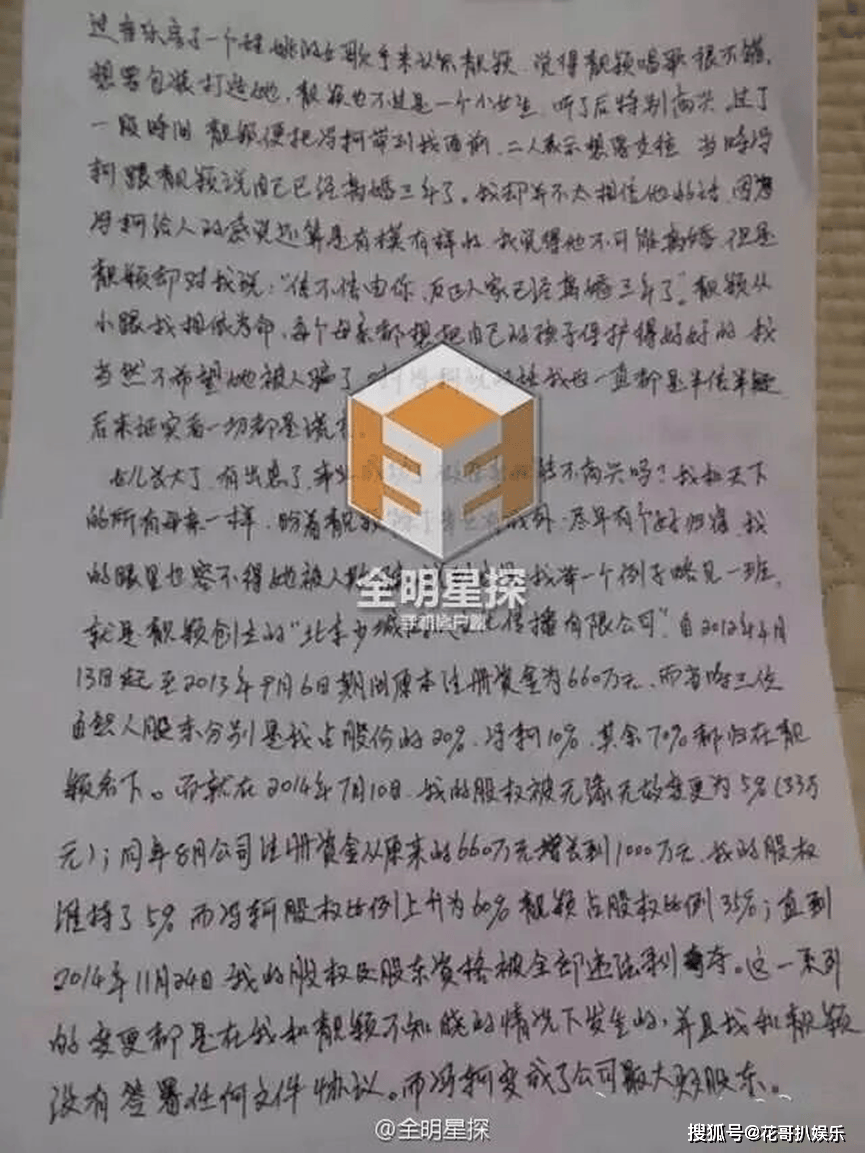 过音乐房了一个姓姚的女歌手来认识靓颖，觉得靓颖唱歌很不错，
想要包装打造她，靓颖也不过是一个小女生，听了后特别高兴，过了
一段时间 靓颖便把冯柯带到我面前，二人表示想要交往，当时冯
柯跟靓颖说自己已经离婚三年了。我却并不太相信他的话，因为
冯柯给人的感觉还算是有模有样的，我觉得他不可能离婚，但是
靓颖却对我说：“信不信由你，反正人家已经离婚三年了”。靓颖从
小跟我相依为命，每个母亲都想把自己的孩子保护得好好的，我
当然不希望她被人骗了，对冯柯说的话我也一直都是半信半疑
后来证实着一切都是谎言。
女儿长大了，有出息了，事业成功，做母亲的能不高兴吗？我和天下
的所有母亲一样，盼着靓颖除了事业有成外，尽早有个好归宿，我
的眼里也容不得她被人 我举一个例子略见一斑，
就是靓颖创立的“北京少城 文化传播有限公司”，自2012年4月
13日起至2013年9月6日期间原本注册资金为660万元，而当时三位
自然人股东分别是我占股份的20%，冯柯10%，其余70%都归在靓
颖名下。而就在2014年7月10日，我的股权被无缘无故变更为5%（33万
元）；同年8月公司注册资金从原来的660万元增长到1000万元，我的股权
维持了5% 而冯轲股权比例上升为60% 靓颖占股权比例35%；直到
2014年11月24日，我的股权及股东资格被全部违法剥夺。这一系列
的变更都是在我和靓颖不知晓的情况下发生的，并且我和靓颖
没有签署任何文件协议。而冯轲变成了公司最大股东。
全明星探
手机客户端
@全明星探
搜狐号@花哥扒娱乐